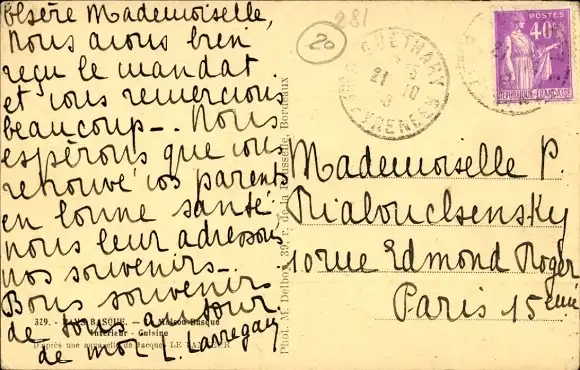 Chère Mademoiselle,
Nous avons bien
reçu le mandat
et vous remercions
beaucoup -. Nous
espérons que vous
retrouvé vos parents
en bonne santé
nous leur adressons
nos souvenirs -
Bons souvenirs
de tous autour
de moi L. Larregain
329. - PAYS BASQUE. - Maison Basque
Intérieur - Cuisine
D'après une aquarelle de Jacques LE TANNEUR
Phot. M. Delboy, 39, r. de la Rousselle, Bordeaux
281
20
GUÉTHARY
21 10
BSES PYRENEES
POSTES
40c
REPUBLIQUE FRANÇAISE
Mademoiselle P.
Rialouchsensky
10 rue Edmond Roger
Paris 15eme